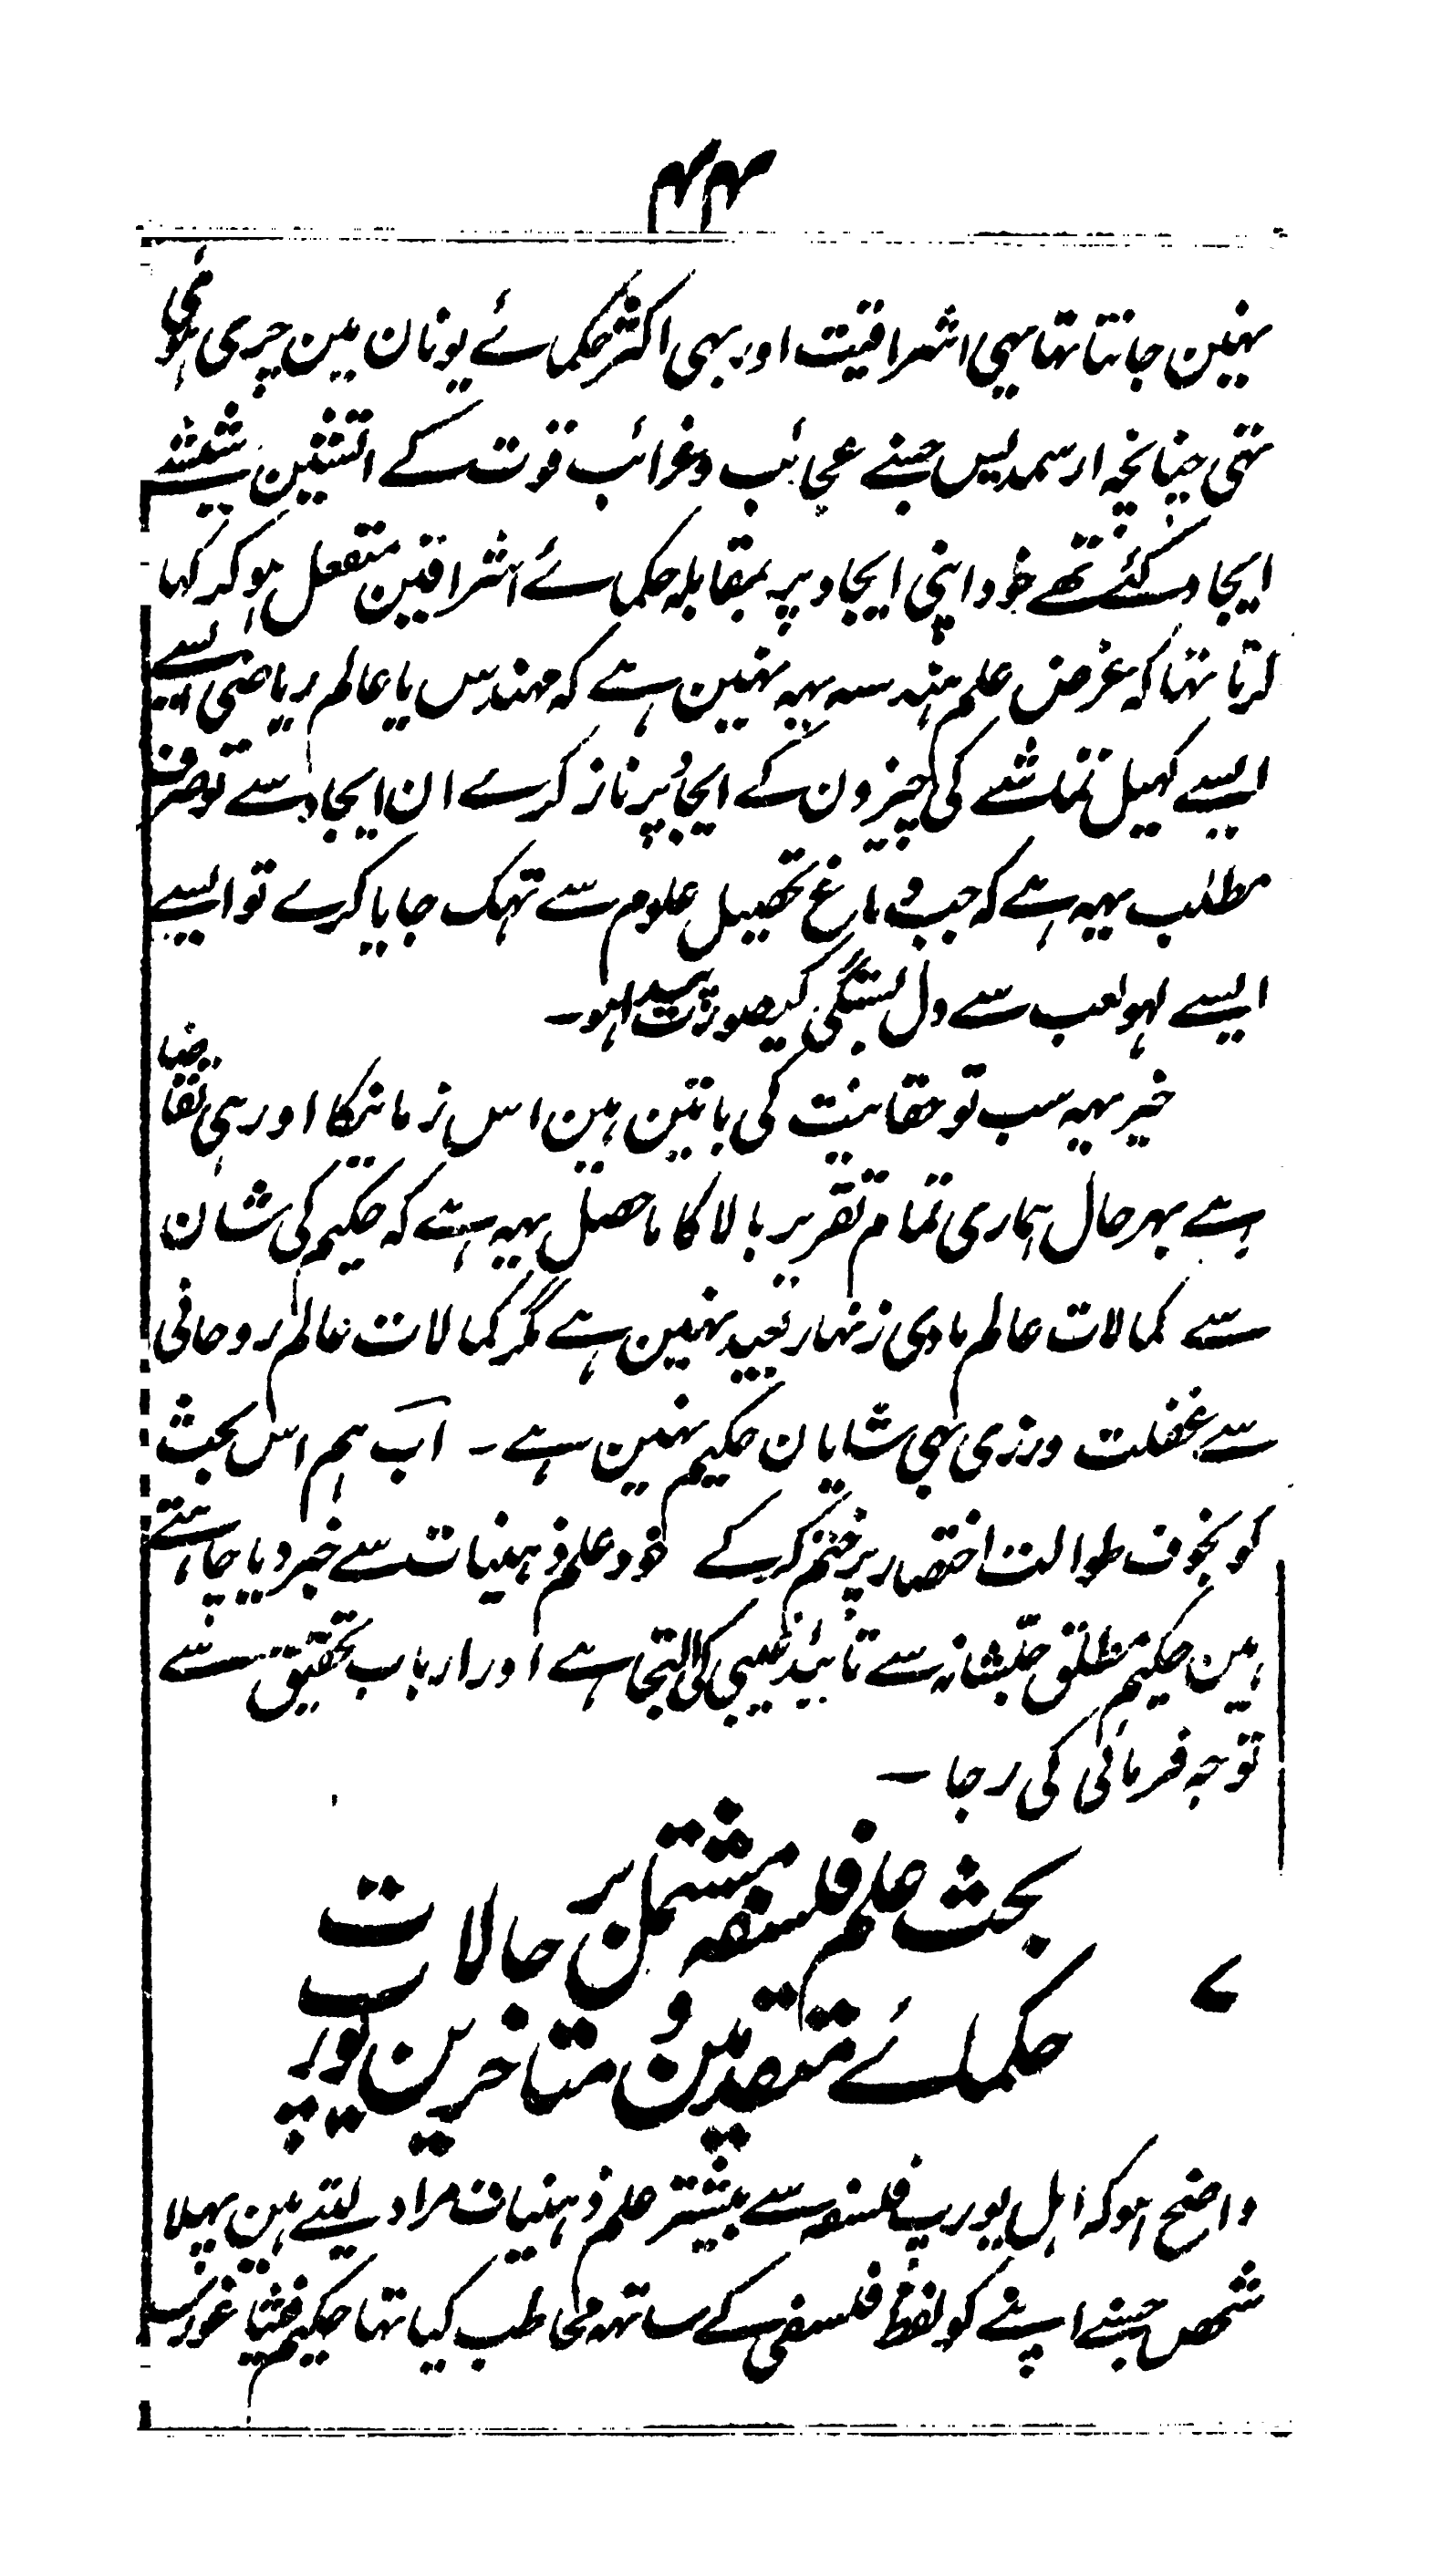 ۴۴
نہین جانتا تہا یہی اشراقیت اور بہی اکثر حکمائے یونان مین چری ہوئی
تہی چنانچہ ارسمدیس جسنے عجائب و غرائب قوت کے اتشین شیشے
ایجاد کئے تھے خود اپنی ایجاد پر بمقابلہ حکمائے اشراقین منفعل ہو کر کہا
کرتا تہا کہ غرض علم ہندسہ یہہ نہین ہے کہ مہندس یا عالم ریاضی ایسے
ایسے کہیل تماشے کی چیزون کے ایجاد پر ناز کرے ان ایجاد سے تو صرف
مطلب یہہ ہے کہ جب دماغ تحصیل علوم سے تہک جایا کرے تو ایسے
ایسے لہو لعب سے دل بستگی کیصورت پیدا ہو۔
خیر یہہ سب تو حقانیت کی باتین ہین اس زمانیکا اور ہی تقاضا
ہے بہر حال ہماری تمام تقریر بالا کا ماحصل یہہ ہے کہ حکیم کی شان
سے کمالات عالم مادی زنہار بعید نہین ہے مگر کمالات عالم روحانی
سے غفلت ورزی بہی شایان حکیم نہین ہے۔ اب ہم اس بحث
کو بخوف طوالت اختصار پر ختم کرکے خود علم ذہنیات سے خبر دیا چاہتے
ہین حکیم مطلق جلشانہ سے تائید غیبی کی التجا ہے اور ارباب تحقیق سے
توجہ فرمائی کی رجا۔
بحث علم فلسفہ مشتمل بر حالات
حکمائے متقدمین و متاخرین یورپ
۷
واضح ہو کہ اہل یورپ فلسفہ سے بیشتر علم ذہنیات مراد لیتے ہین پہلا
شخص جسنے اپنے کو لفظ فلسفی کے ساتہہ مخاطب کیا تہا حکیم فیثاغورث